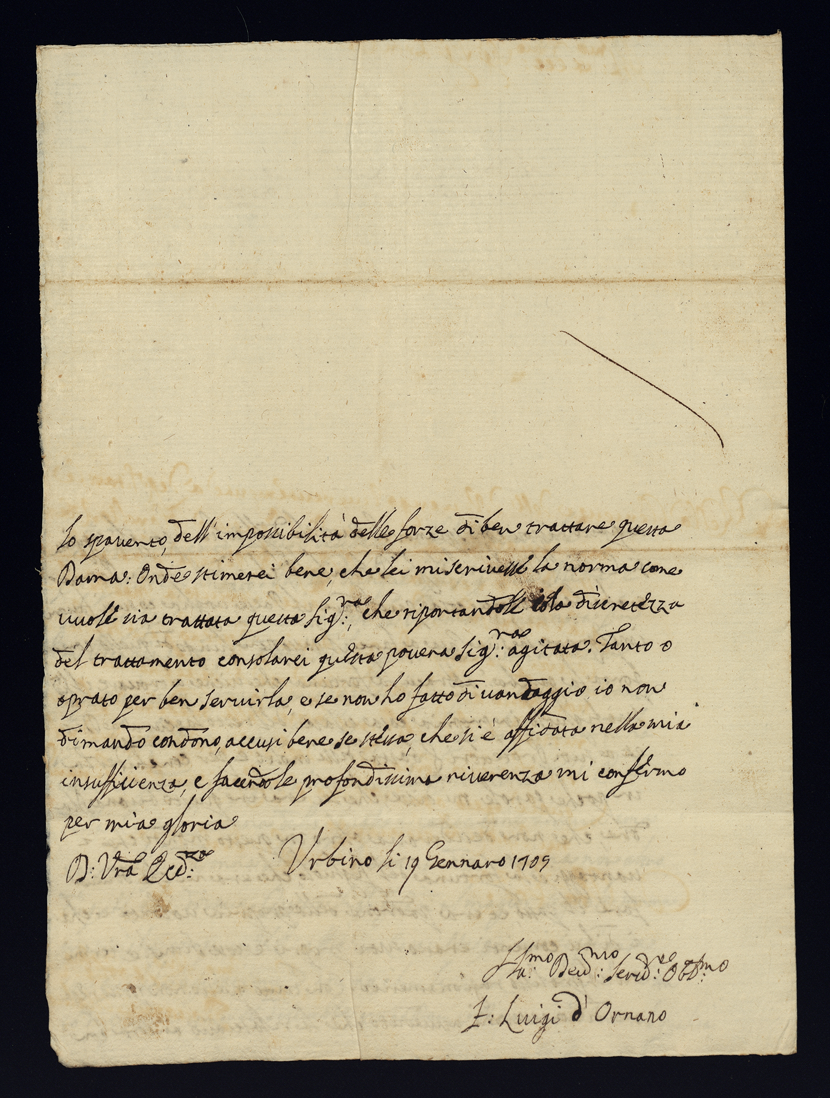 Io spavento, dell'impossibilità delle forze di ben trattare questa
Dama: Onde stimerei bene, che lei mi scrivesse la norma come
vuole sia trattata questa Sig:ra, che riportandole dila dicretezza
del trattamento consolarei questa povera Sig:ra agitata. Tanto o
oprato per ben servirla, e se non ho fatto di vandaggio io non
dimando condono, accusi bene se stessa, che si è affidata nella mia
insufficienza, e facendole profondissima riverenza mi confermo
per mia gloria
D: Vra Ecc:za Urbino li 19 Gennaro 1709
Devd:mo Servd:re Obb:mo
F: Luigi d'Ornano